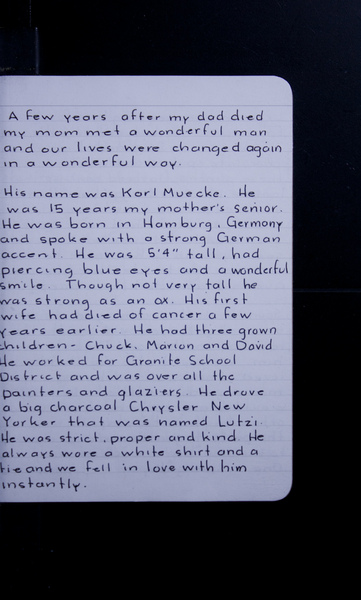 A few years after my dad died
my mom met a wonderful man
and our lives were changed again
in a wonderful way.
His name was Karl Muecke. He
was 15 years my mother's senior.
He was born in Hamburg, Germany
and spoke with a strong German
accent. He was 5'4" tall, had
piercing blue eyes and a wonderful
smile. Though not very tall he
was strong as an ox. His first
wife had died of cancer a few
years earlier. He had three grown
children - Chuck, Marion and David.
He worked for Granite School
District and was over all the
painters and glaziers. He drove
a big charcoal Chrysler New
Yorker that was named Lutzi.
He was strict, proper and kind. He
always wore a white shirt and a
tie and we fell in love with him
instantly.